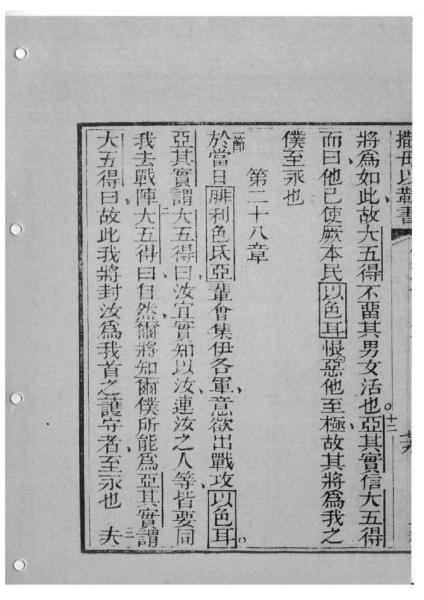 撒母以勒書
將為如此故大五得不留其男女活也。十二亞其實信大五得
而曰他已使厥本民以色耳恨惡他至極故其將為我之
僕至永也
第二十八章
一節於當日腓利色氏亞輩會集伊各軍意欲出戰攻以色耳。
亞其實謂大五得曰汝宜實知以汝連汝之人等皆要同
我去戰陣二大五得曰自然爾將知爾僕所能為亞其實謂
大五得曰故此我將封汝為我首之護守者至永也三夫